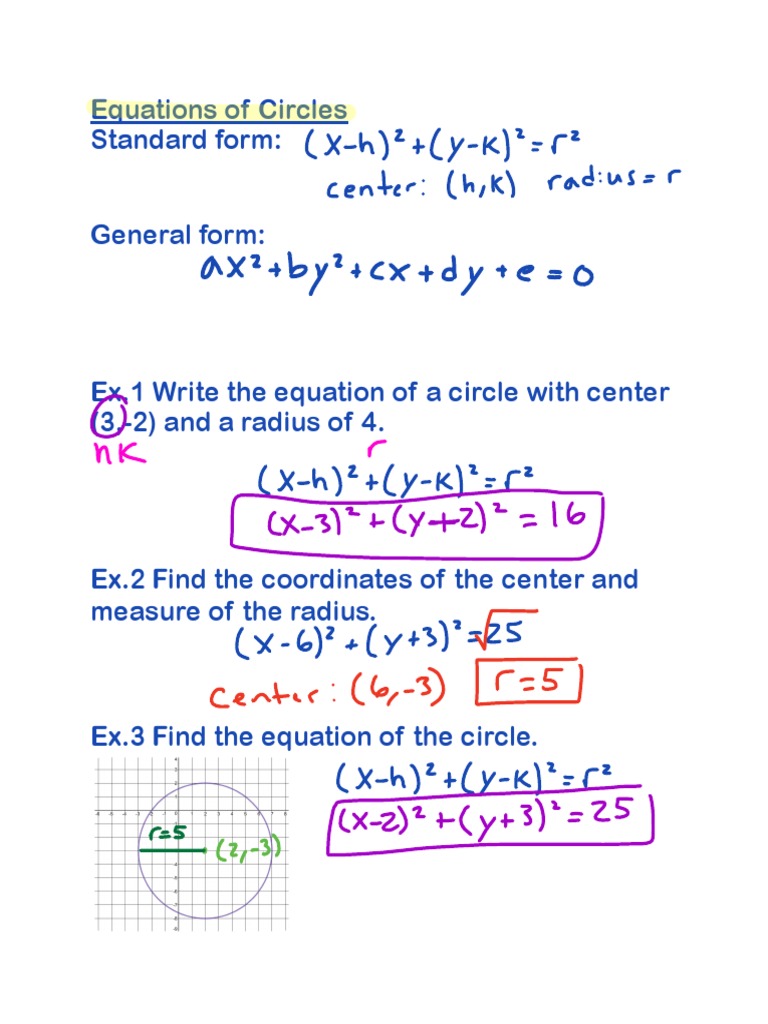 Equations of Circles
Standard form: (x-h)² + (y-k)² = r²
center: (h,k) radius = r
General form:
ax² + by² + cx + dy + e = 0
Ex.1 Write the equation of a circle with center
(3,-2) and a radius of 4.
h K r
(x-h)² + (y-k)² = r²
(x-3)² + (y+2)² = 16
Ex.2 Find the coordinates of the center and
measure of the radius.
(x-6)² + (y+3)² = √25
center: (6,-3) r=5
Ex.3 Find the equation of the circle.
(x-h)² + (y-k)² = r²
(x-2)² + (y+3)² = 25
r=5
(2,-3)